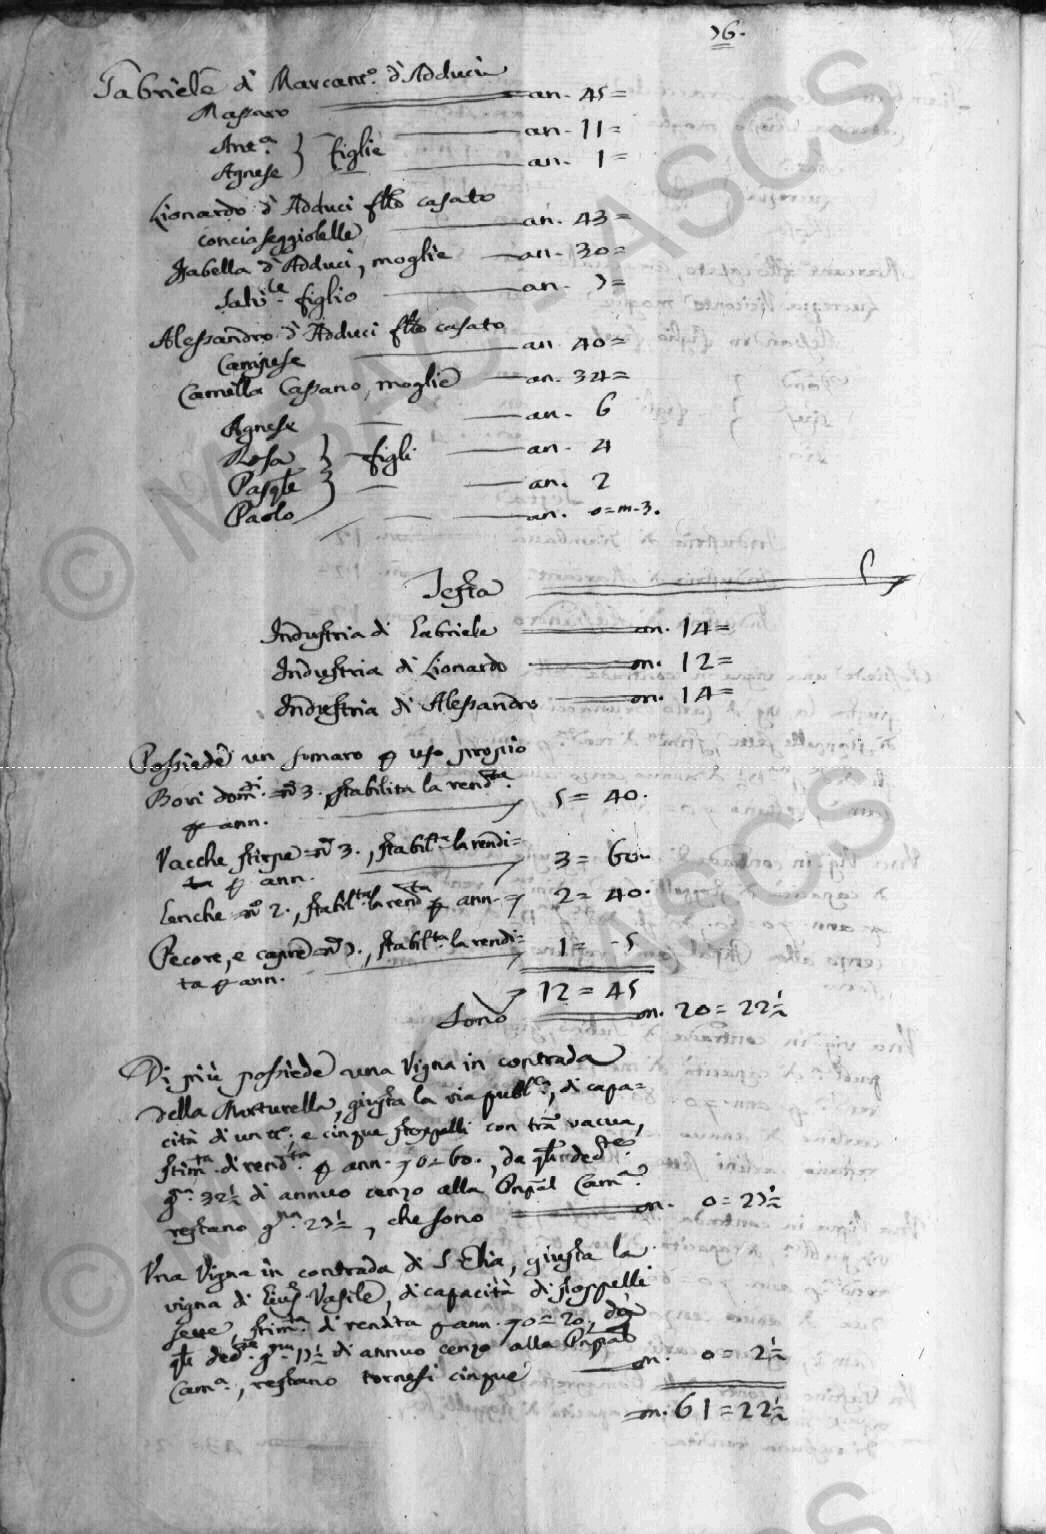 76.
Gabriele di Marcant.º d'Adduci
Massaro an. 45=
Ant.ª } figlie an. 11=
Agnese an. 1=
Lionardo d'Adduci casato
concia seggiolelle an. 43=
Isabella d'Adduci, moglie an. 30=
figlio an. 7=
Alessandro d'Adduci casato
Campese an. 40=
Camilla Cassano, moglie an. 34=
Agnese an. 6
Rosa } figli an. 4
Pasqle an. 2
Paolo an. 0=m-3.
Testa
Industria di Gabriele on. 14=
Industria di Lionardo on. 12=
Industria di Alessandro on. 14=
Possiede un somaro p uso propio
Bovi dom.ti nº 3., stabilita la rend.ta
p ann. 5=40.
Vacche stirpe=nº 3., stabil.ta la rendi=
ta p ann. 3=60
Genche nº 2., stabil.ta la rend.ta p ann. 2=40.
Pecore, e capre=nº 7., stabil.ta la rendi=
ta p ann. 1=-5
12=45
Sono on. 20=22½
Di più possiede una Vigna in contrada
della Marturella, giusta la via publ.ca, di capa=
cità di un e cinque stoppelli con vacua,
stim.ta di rend.ta p ann. 70=60., da
g.na 32½ di annuo cenzo alla Cam.ª
restano g.na 27½, che sono on. 0=27½
Una Vigna in contrada di S. Elia, giusta la
vigna di Vasile, di capacità di stoppelli
sette, stim.ta di rendita p ann. 70=20, da
ded.te g.na 17½ di annuo cenzo alla
Cam.ª, restano tornesi cinque on. 0=2½
on. 61=22½
© MIBAC - ASCS
© MIBAC - ASCS